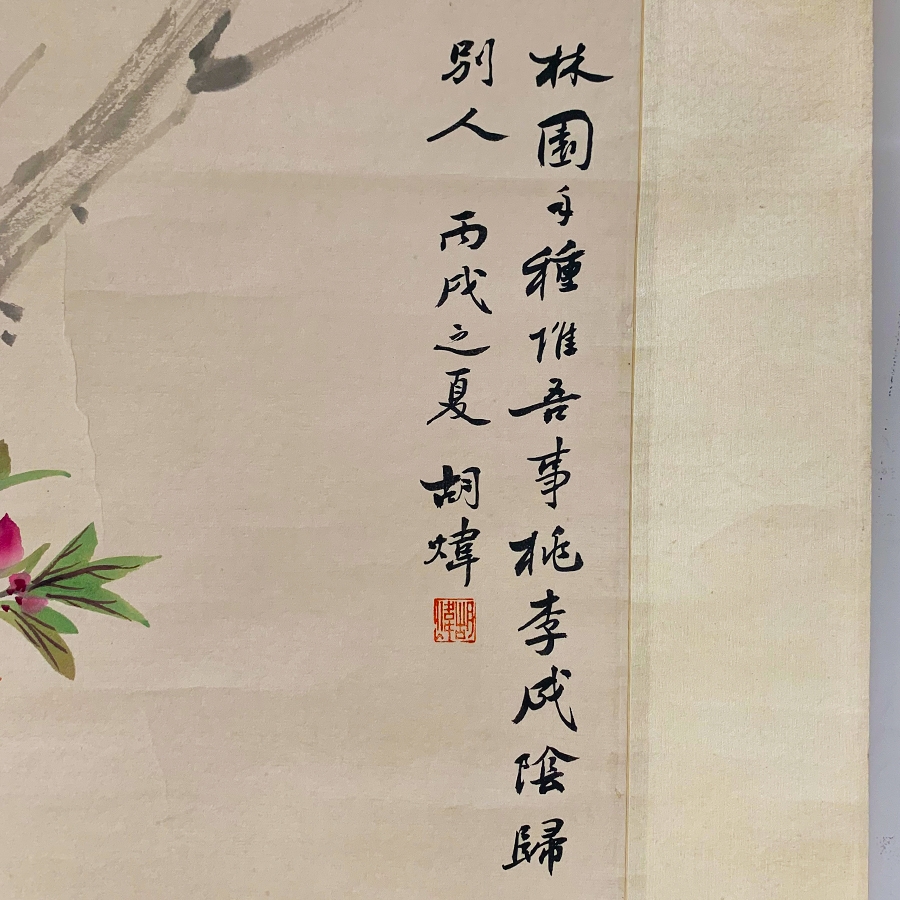 林園手種惟吾事桃李成陰歸
別人 丙戌之夏 胡煒
胡煒